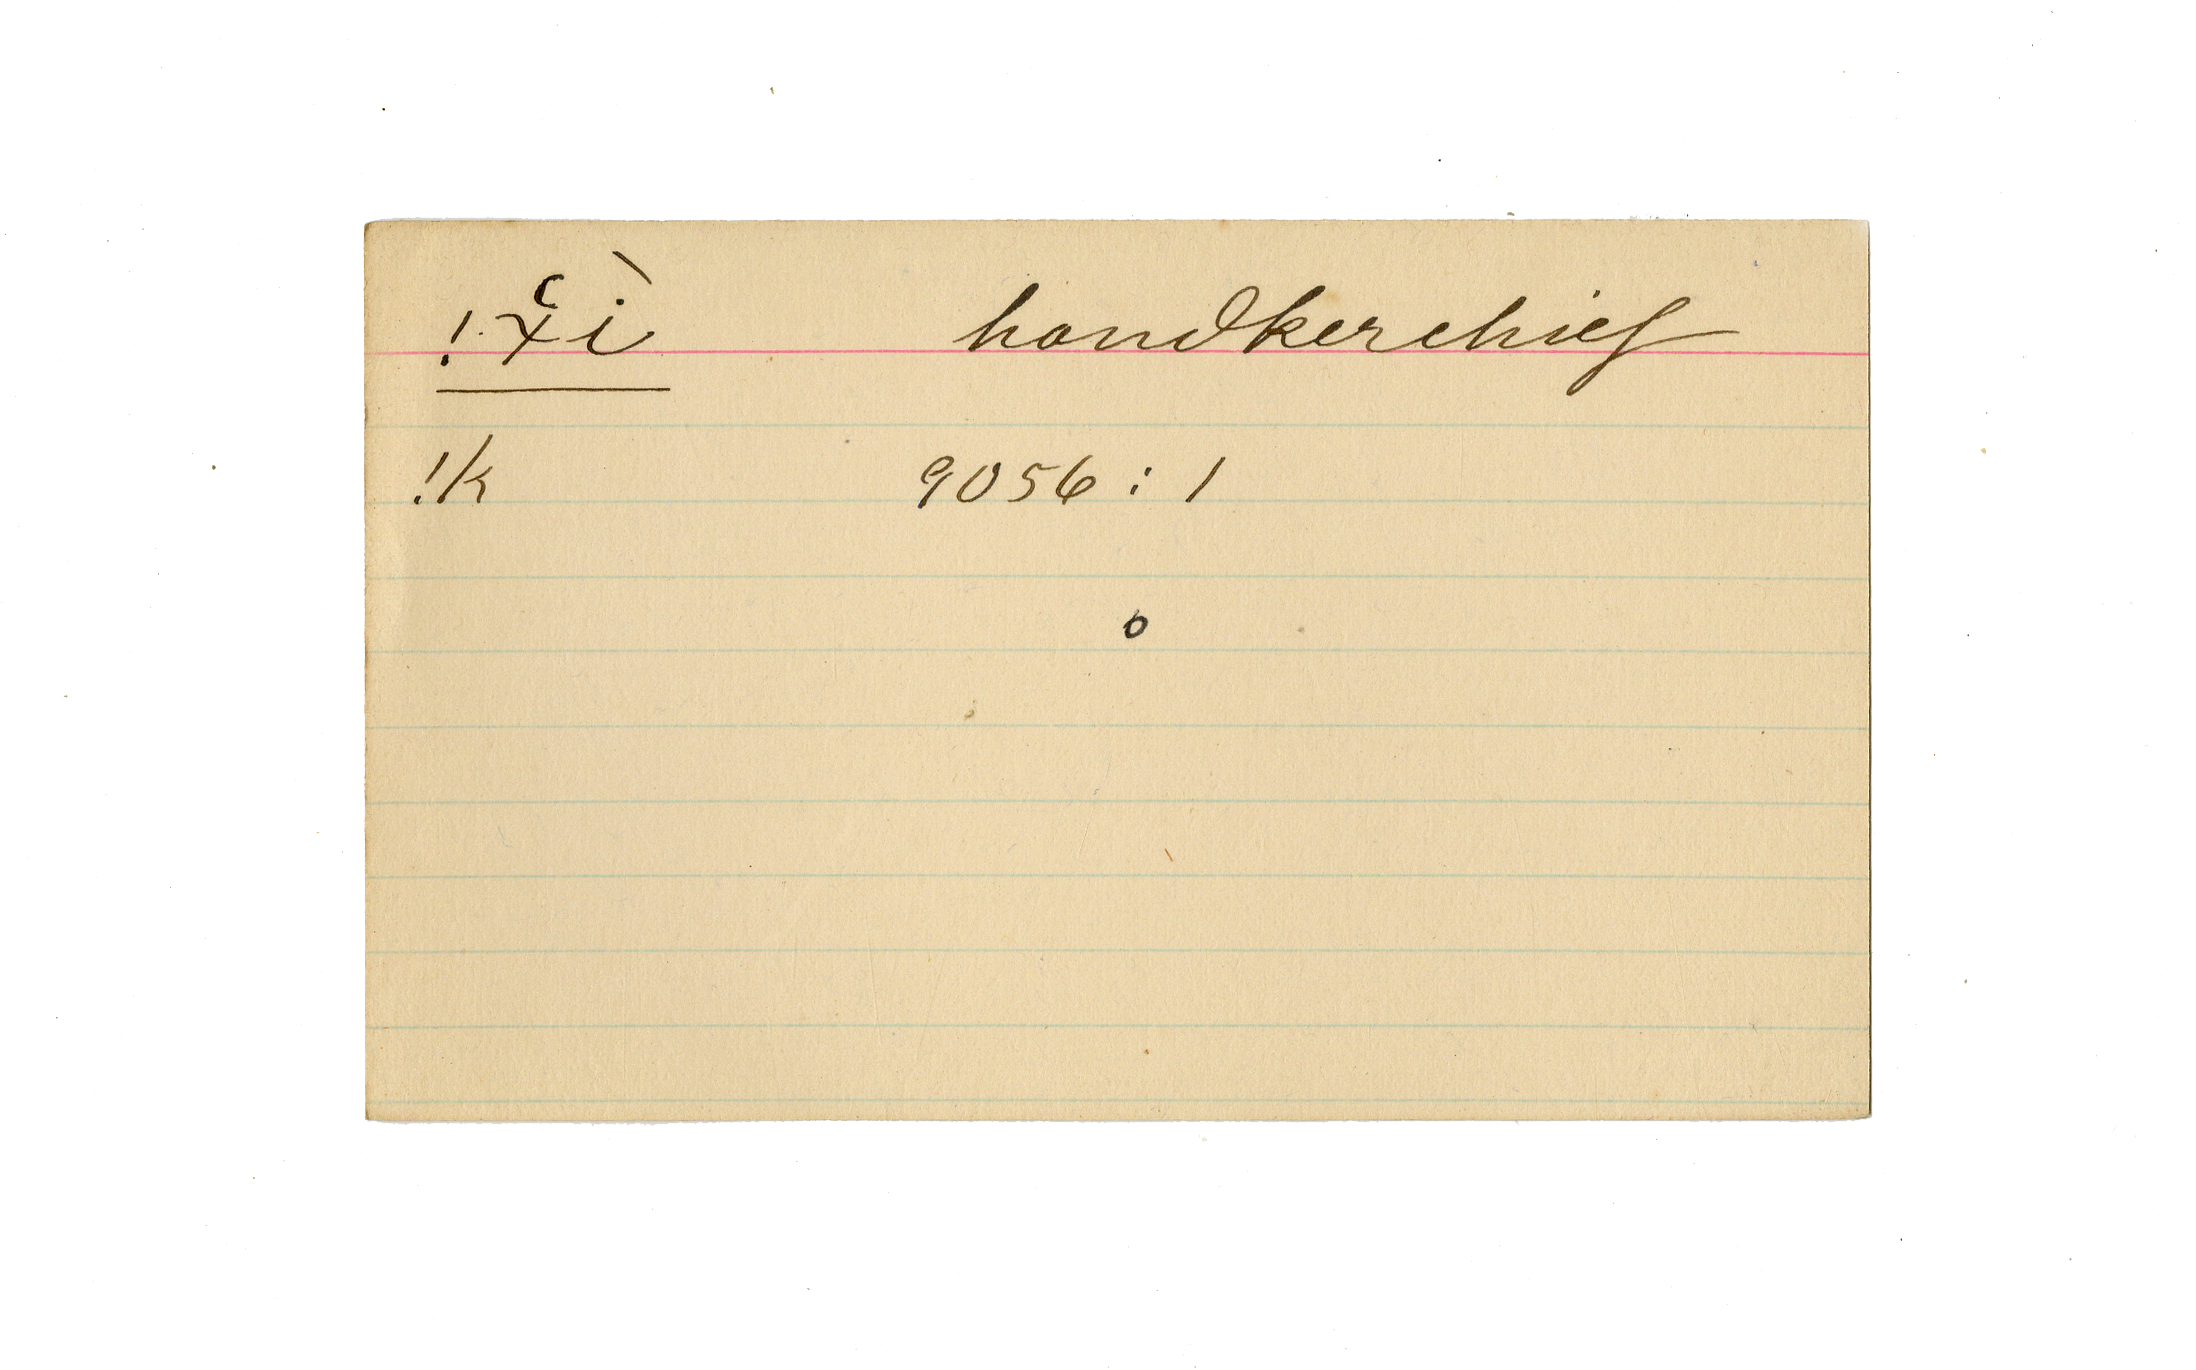 !χ̔ì handkerchief
!k 9056 : 1
o